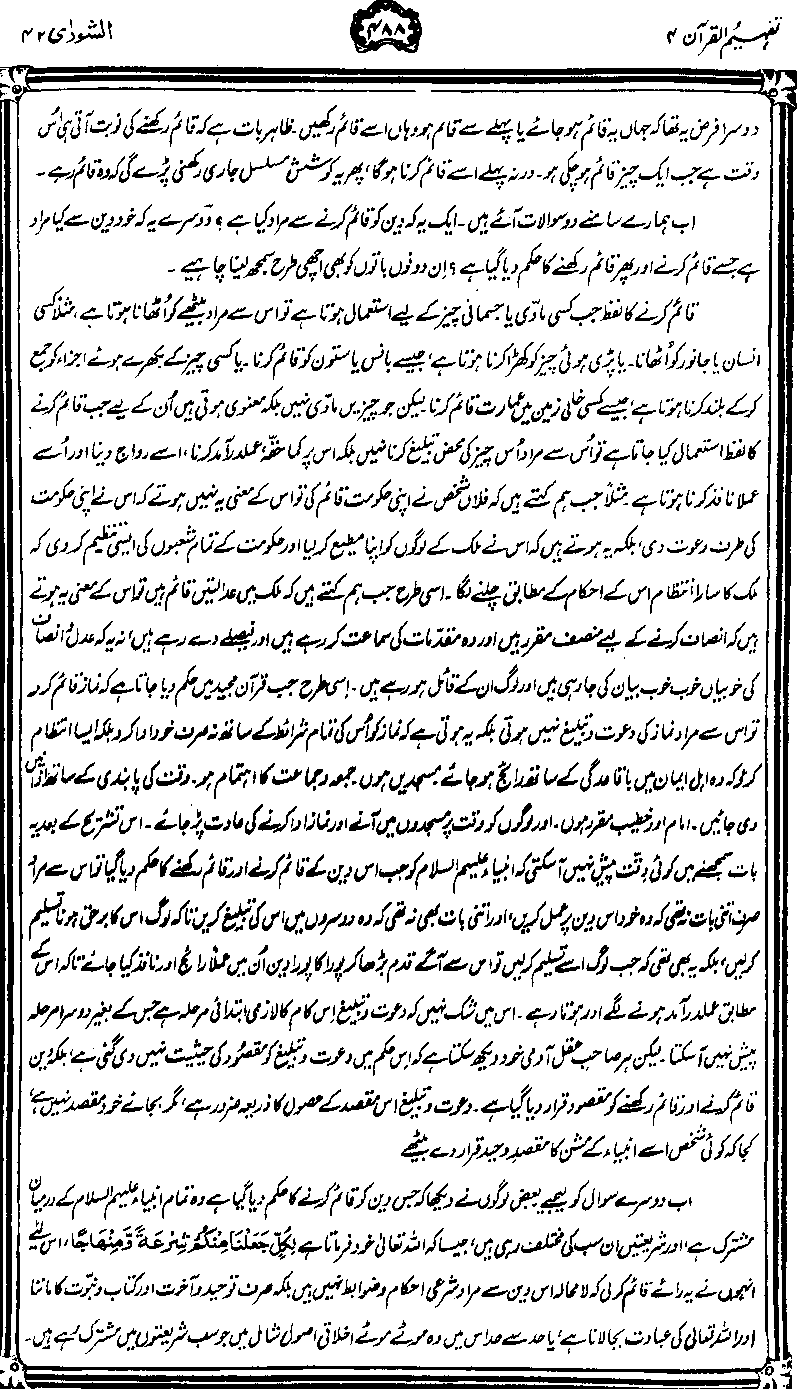 تفہیم القرآن ۴
۴۸۸
الشورٰی ۴۲
دوسرا فرض یہ تھا کہ جہاں یہ قائم ہو جائے یا پہلے سے قائم ہو وہاں اسے قائم رکھیں۔ ظاہر بات ہے کہ قائم رکھنے کی نوبت آتی ہی اُس
وقت ہے جب ایک چیز قائم ہو چکی ہو۔ ورنہ پہلے اسے قائم کرنا ہوگا، پھر یہ کوشش مسلسل جاری رکھنی پڑے گی کہ وہ قائم رہے۔
اب ہمارے سامنے دو سوالات آتے ہیں۔ ایک یہ کہ دین کو قائم کرنے سے مراد کیا ہے؟ دوسرے یہ کہ خود دین سے کیا مراد
ہے جسے قائم کرنے اور پھر قائم رکھنے کا حکم دیا گیا ہے؟ اِن دونوں باتوں کو بھی اچھی طرح سمجھ لینا چاہیے۔
قائم کرنے کا لفظ جب کسی مادّی یا جسمانی چیز کے لیے استعمال ہوتا ہے تو اس سے مراد بیٹھے کو اُٹھانا ہوتا ہے، مثلاً کسی
انسان یا جانور کو اُٹھانا۔ یا پڑی ہوئی چیز کو کھڑا کرنا ہوتا ہے، جیسے بانس یا ستون کو قائم کرنا۔ یا کسی چیز کے بکھرے ہوئے اجزاء کو جمع
کر کے بلند کرنا ہوتا ہے، جیسے کسی خالی زمین میں عمارت قائم کرنا لیکن جو چیزیں مادّی نہیں بلکہ معنوی ہوتی ہیں اُن کے لیے جب قائم کرنے
کا لفظ استعمال کیا جاتا ہے تو اُس سے مراد اُس چیز کی محض تبلیغ کرنا نہیں بلکہ اس پر کما حقّہٗ عملدرآمد کرنا، اسے رواج دینا اور اُسے
عملاً نافذ کرنا ہوتا ہے۔ مثلاً جب ہم کہتے ہیں کہ فلاں شخص نے اپنی حکومت قائم کی تو اس کے معنی یہ نہیں ہوتے کہ اس نے اپنی حکومت
کی طرف دعوت دی، بلکہ یہ ہوتے ہیں کہ اس نے ملک کے لوگوں کو اپنا مطیع کر لیا اور حکومت کے تمام شعبوں کی ایسی تنظیم کر دی کہ
ملک کا سارا انتظام اس کے احکام کے مطابق چلنے لگا۔ اسی طرح جب ہم کہتے ہیں کہ ملک میں عدالتیں قائم ہیں تو اس کے معنی یہ ہوتے
ہیں کہ انصاف کرنے کے لیے منصف مقرر ہیں اور وہ مقدمات کی سماعت کر رہے ہیں اور فیصلے دے رہے ہیں، نہ یہ کہ عدل و انصاف
کی خوبیاں خوب خوب بیان کی جا رہی ہیں اور لوگ ان کے قائل ہو رہے ہیں۔ اِسی طرح جب قرآن مجید میں حکم دیا جاتا ہے کہ نماز قائم کرو
تو اس سے مراد نماز کی دعوت و تبلیغ نہیں ہوتی بلکہ یہ ہوتی ہے کہ نماز کو اُس کی تمام شرائط کے ساتھ نہ صرف خود ادا کرو بلکہ ایسا انتظام
کرو کہ وہ اہل ایمان میں باقاعدگی کے ساتھ رائج ہو جائے۔ مسجدیں ہوں۔ جمعہ و جماعت کا اہتمام ہو۔ وقت کی پابندی کے ساتھ اذانیں
دی جائیں۔ امام اور خطیب مقرر ہوں۔ اور لوگوں کو وقت پر مسجدوں میں آنے اور نماز ادا کرنے کی عادت پڑ جائے۔ اس تشریح کے بعد یہ
بات سمجھنے میں کوئی دِقّت پیش نہیں آ سکتی کہ انبیاء علیہم السلام کو جب اس دین کے قائم کرنے اور قائم رکھنے کا حکم دیا گیا تو اس سے مراد
صرف اتنی بات نہ تھی کہ وہ خود اس دین پر عمل کریں، اور اتنی بات بھی نہ تھی کہ وہ دوسروں میں اس کی تبلیغ کریں تاکہ لوگ اس کا برحق ہونا تسلیم
کرلیں، بلکہ یہ بھی تھی کہ جب لوگ اسے تسلیم کرلیں تو اس سے آگے قدم بڑھا کر پورا کا پورا دین اُن میں عملاً رائج اور نافذ کیا جائے تاکہ اس کے
مطابق عملدرآمد ہونے لگے اور ہوتا رہے۔ اس میں شک نہیں کہ دعوت و تبلیغ اِس کام کا لازمی ابتدائی مرحلہ ہے جس کے بغیر دوسرا مرحلہ
پیش نہیں آ سکتا۔ لیکن ہر صاحب عقل آدمی خود دیکھ سکتا ہے کہ اِس حکم میں دعوت و تبلیغ کو مقصود کی حیثیت نہیں دی گئی ہے، بلکہ دین
قائم کرنے اور قائم رکھنے کو مقصود قرار دیا گیا ہے۔ دعوت و تبلیغ اس مقصد کے حصول کا ذریعہ ضرور ہے، مگر بجائے خود مقصد نہیں ہے،
کجا کہ کوئی شخص اسے انبیاء کے مشن کا مقصدِ وحید قرار دے بیٹھے
اب دوسرے سوال کو لیجیے بعض لوگوں نے دیکھا کہ جس دین کو قائم کرنے کا حکم دیا گیا ہے وہ تمام انبیاء علیہم السلام کے درمیان
مشترک ہے، اور شریعتیں ان سب کی مختلف رہی ہیں، جیسا کہ اللہ تعالیٰ خود فرماتا ہے لِكُلٍّ جَعَلْنَا مِنْكُمْ شِرْعَةً وَّمِنْهَاجًا، اس لئے
انہوں نے یہ رائے قائم کرلی کہ لامحالہ اس دین سے مراد شرعی احکام و ضوابط نہیں ہیں بلکہ صرف توحید و آخرت اور کتاب و نبوّت کا ماننا
اور اللہ تعالیٰ کی عبادت بجا لانا ہے، یا حد سے حد اس میں وہ موٹے موٹے اخلاقی اصول شامل ہیں جو سب شریعتوں میں مشترک رہے ہیں۔